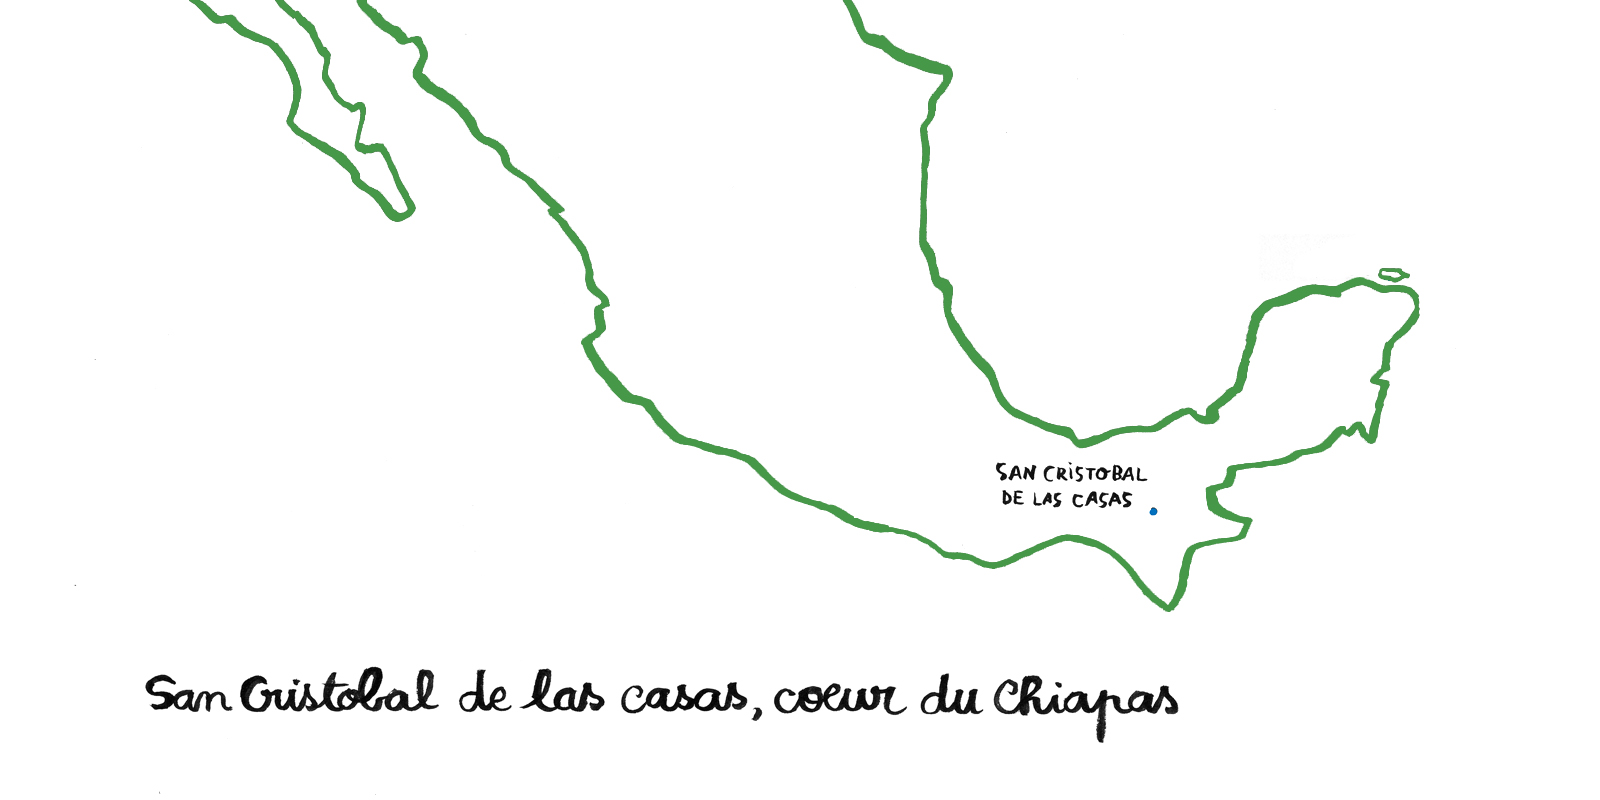 SAN CRISTOBAL
DE LAS CASAS
San Cristobal de las casas, coeur du Chiapas